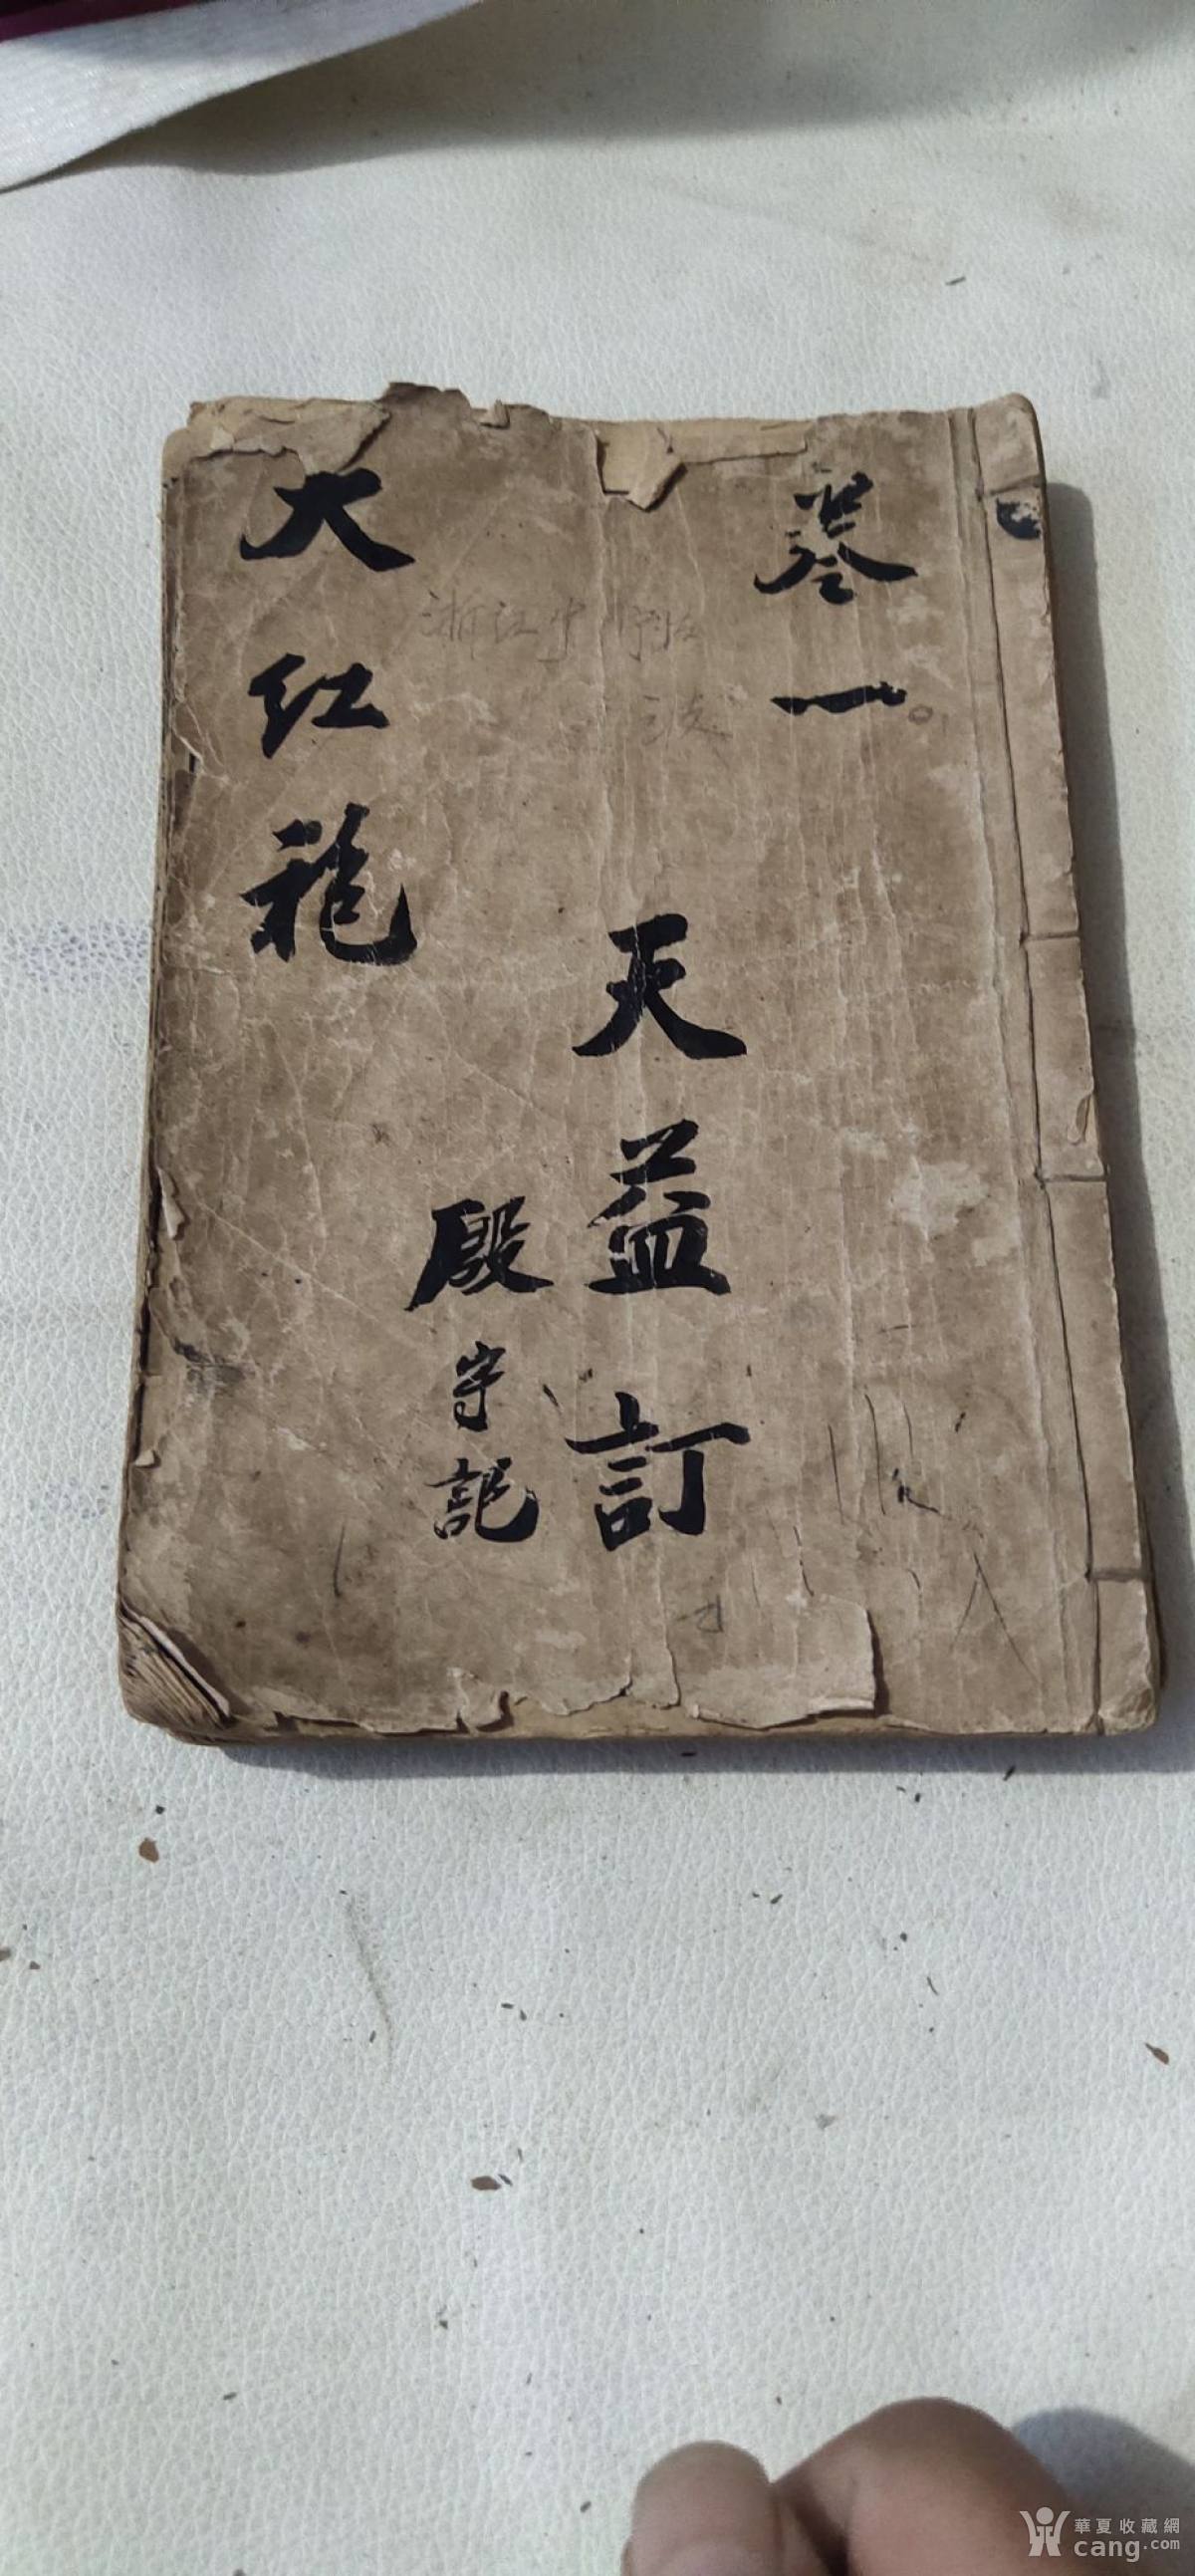 卷一
天益訂
殿守記
大红袍
浙江
華夏收藏網
cang.com